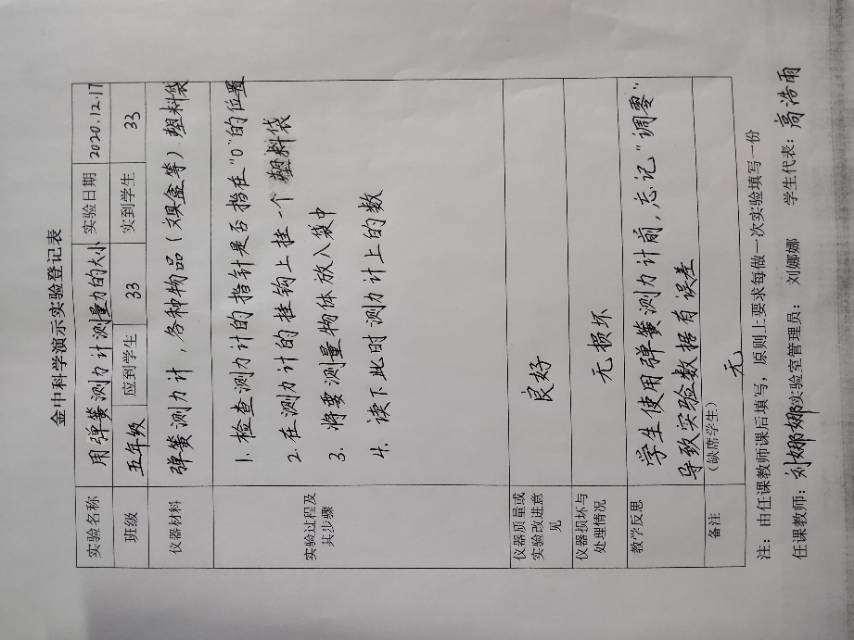 金中科学演示实验登记表
实验名称 用弹簧测力计测量力的大小 实验日期 2020.12.17
班级 五年级 应到学生 33 实到学生 33
仪器材料 弹簧测力计，各种物品（文具盒等）．塑料袋
实验过程及其步骤
1. 检查测力计的指针是否指在“0”的位置
2. 在测力计的挂钩上挂一个塑料袋
3. 将要测量物体放入袋中
4. 读下此时测力计上的数
仪器质量或实验改进意见 良好
仪器损坏与处理情况 无损坏
教学反思 学生使用弹簧测力计前，忘记“调零”
导致实验数据有误差
备注 （缺席学生） 无
注：由任课教师课后填写，原则上要求每做一次实验填写一份
任课教师：刘娜娜 实验室管理员： 刘娜娜 学生代表：高浩雨